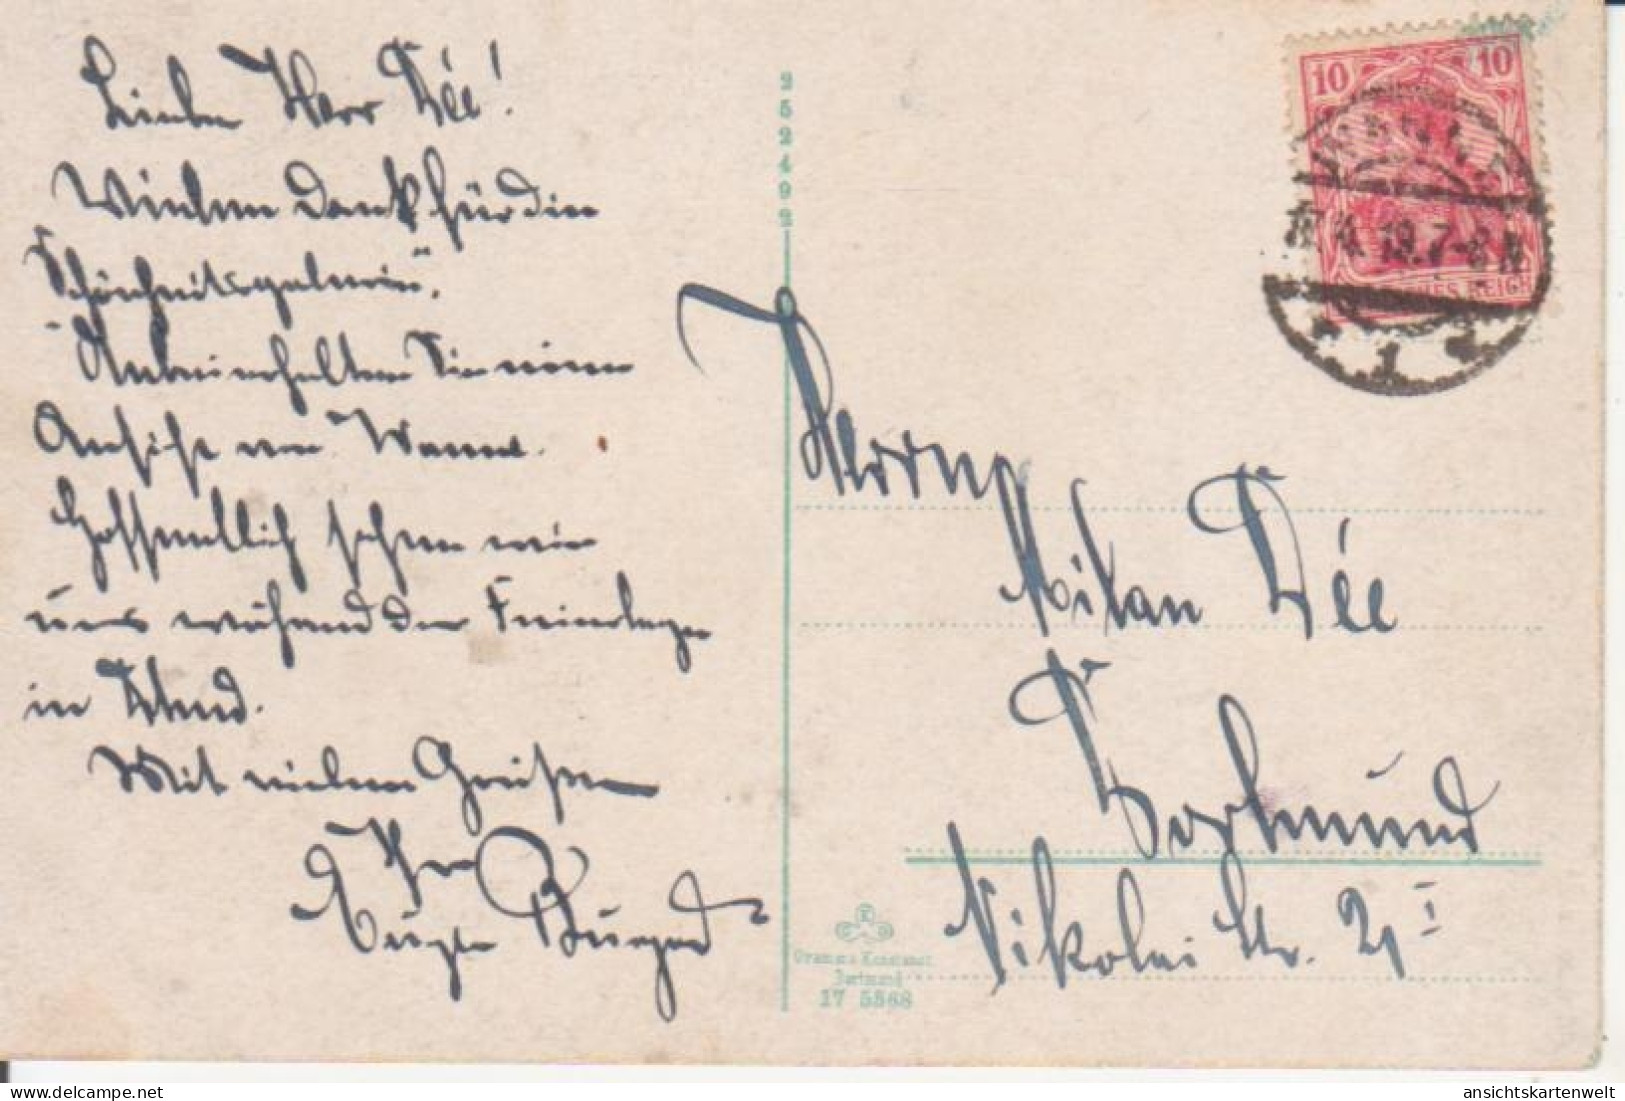 Lieber Herr Dée!
Vielen Dank für die
Schönheitsgalerie".
Anbei erhalten Sie eine
Ansicht von Wanne.
Hoffentlich sehen wir
uns während der Feiertage
in
Mit vielen Grüßen
Ihr
Burgard
252492
10 10
19.7-8N
REICH
1
Herrn
Milan Dée
Dortmund
Nikolai Str. 21 I
Dortmund
17 5568
ansichtskartenwelt